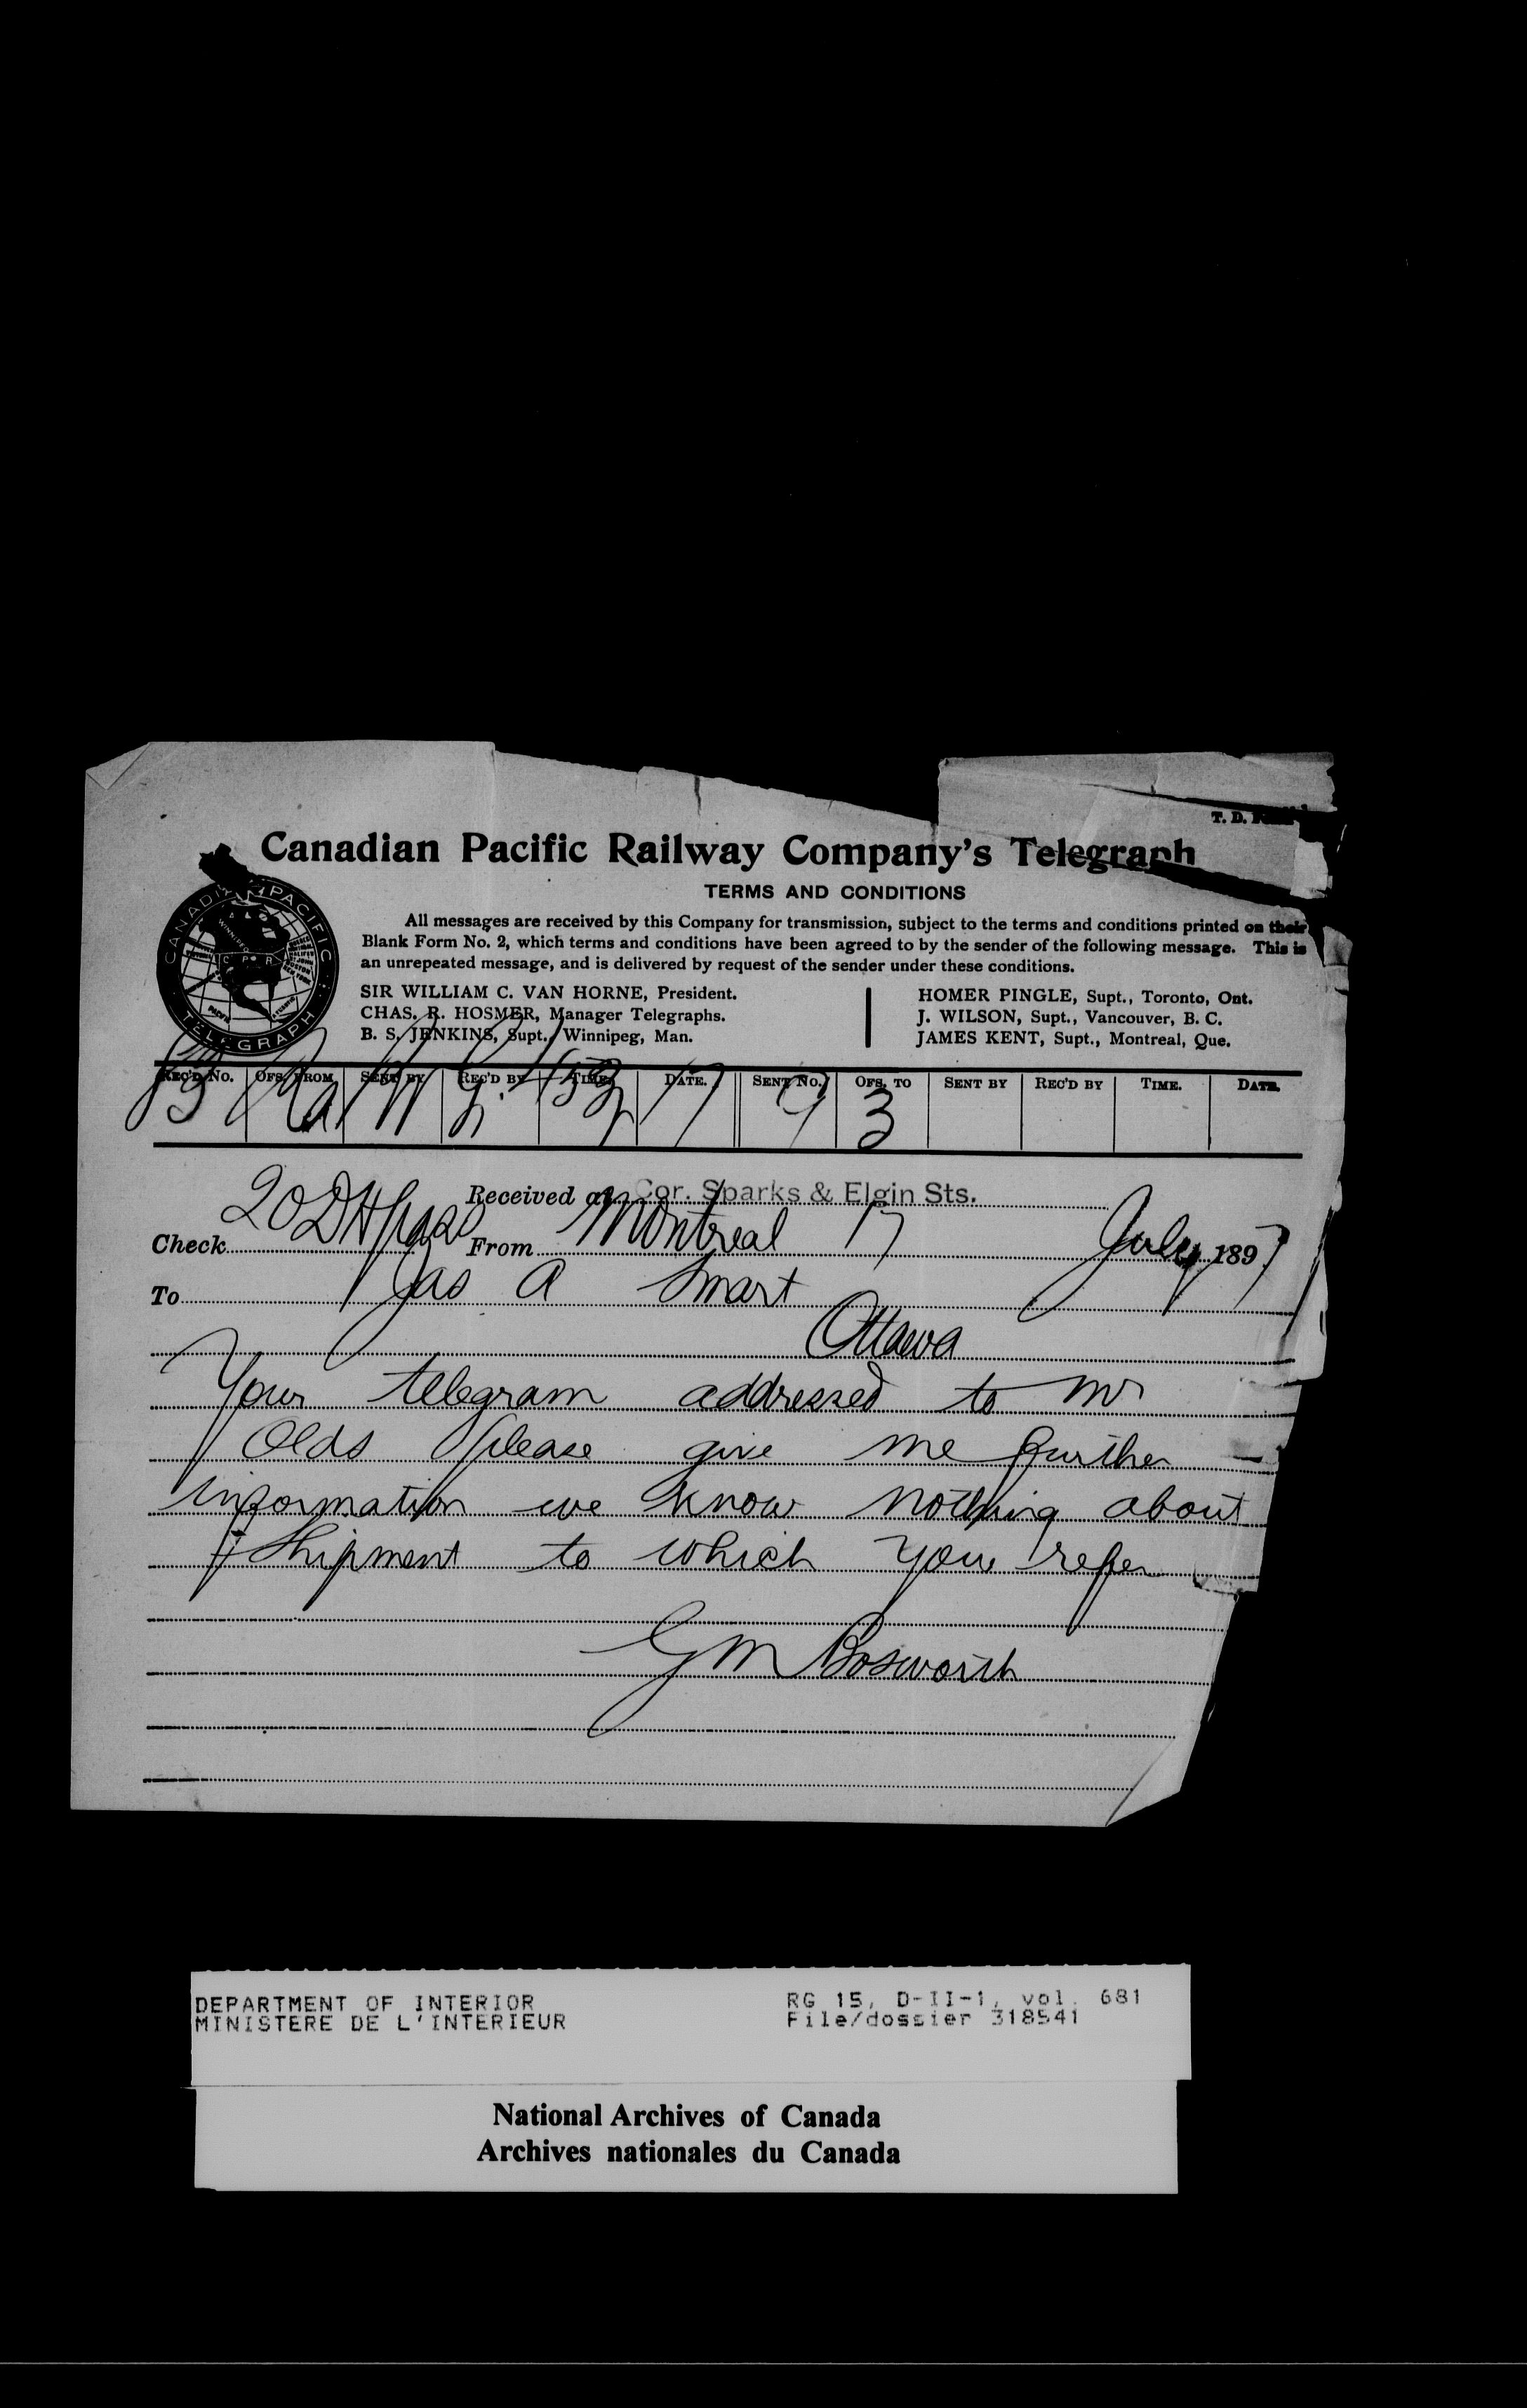 T. D.
Canadian Pacific Railway Company's Telegraph
TERMS AND CONDITIONS
All messages are received by this Company for transmission, subject to the terms and conditions printed on their
Blank Form No. 2, which terms and conditions have been agreed to by the sender of the following message. This is
an unrepeated message, and is delivered by request of the sender under these conditions.
SIR WILLIAM C. VAN HORNE, President.
CHAS. R. HOSMER, Manager Telegraphs.
B. S. JENKINS, Supt., Winnipeg, Man.
HOMER PINGLE, Supt., Toronto, Ont.
J. WILSON, Supt., Vancouver, B. C.
JAMES KENT, Supt., Montreal, Que.
CANADIAN PACIFIC TELEGRAPH
REC'D No. OFS. FROM SENT BY REC'D BY TIME. DATE. SENT No. OFS. TO SENT BY REC'D BY TIME. DATE.
17 9 3
Received at Cor. Sparks & Elgin Sts.
Check 20 DH From Montreal 17 July 1897
To Jas A Smart
Ottawa
Your telegram addressed to Mr
Olds please give me further
information we know nothing about
shipment to which you refer
G M Bosworth
DEPARTMENT OF INTERIOR
MINISTERE DE L'INTERIEUR
RG 15, D-II-1, vol. 681
File/dossier 318541
National Archives of Canada
Archives nationales du Canada